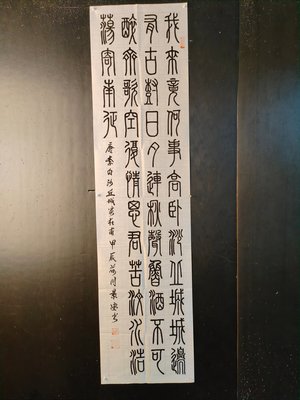 我來竟何事高臥沙丘城城邊
有古樹日夕連秋聲魯酒不可
醉齊歌空復情思君若汶水浩
蕩寄南征
李白沙丘城寄杜甫甲辰荷月